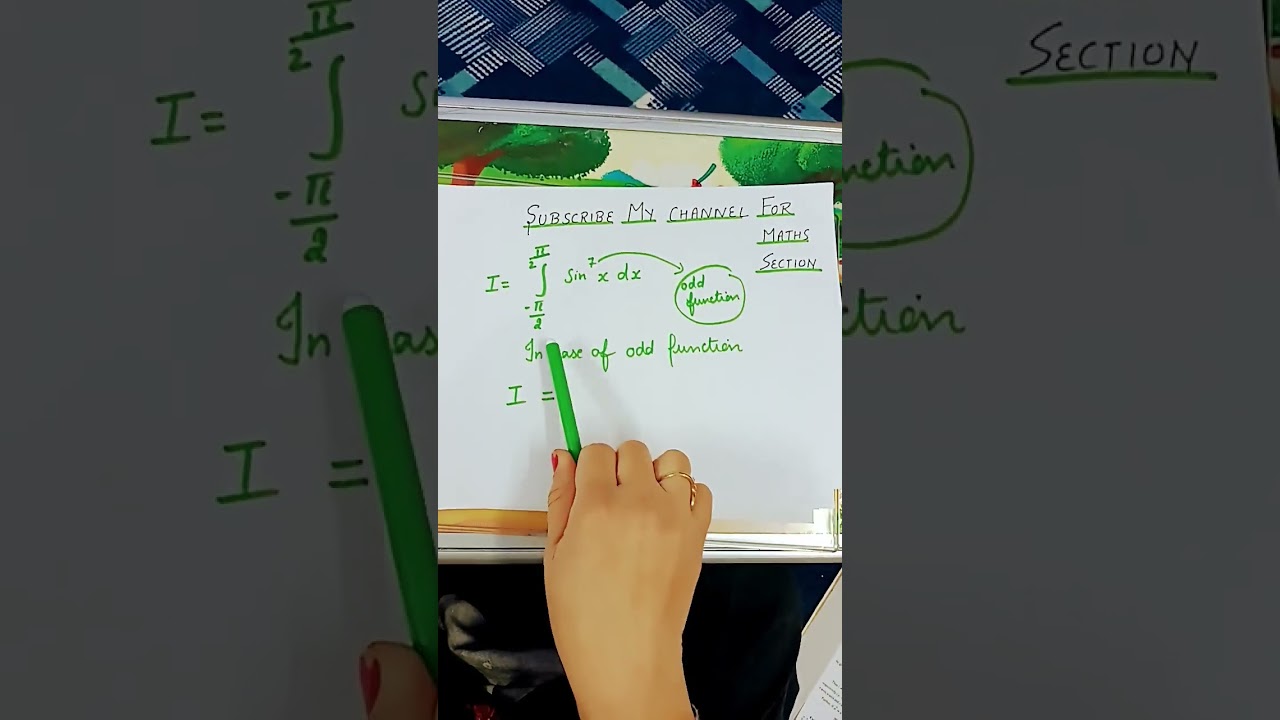 SUBSCRIBE MY CHANNEL FOR
MATHS
SECTION
I = ∫_{-π/2}^{π/2} sin⁷x dx
odd
function
In case of odd function
I =
SECTION